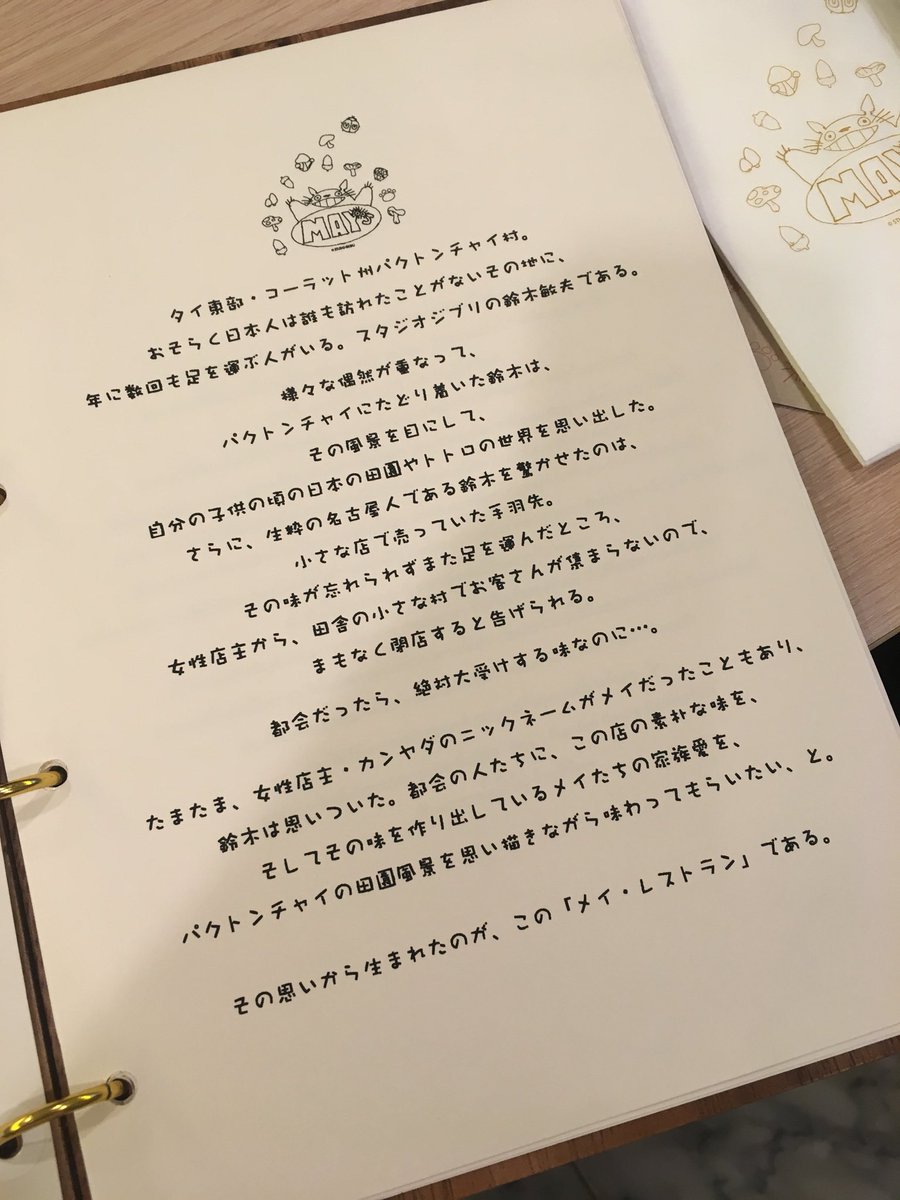 MAY'S
タイ東部・コーラット州パクトンチャイ村。
おそらく日本人は誰も訪れたことがないその地に、
年に数回も足を運ぶ人がいる。スタジオジブリの鈴木敏夫である。
様々な偶然が重なって、
パクトンチャイにたどり着いた鈴木は、
その風景を目にして、
自分の子供の頃の日本の田園やトトロの世界を思い出した。
さらに、生粋の名古屋人である鈴木を驚かせたのは、
小さな店で売っていた手羽先。
その味が忘れられずまた足を運んだところ、
女性店主から、田舎の小さな村でお客さんが集まらないので、
まもなく閉店すると告げられる。
都会だったら、絶対大受けする味なのに…。
たまたま、女性店主・カンヤダのニックネームがメイだったこともあり、
鈴木は思いついた。都会の人たちに、この店の素朴な味を、
そしてその味を作り出しているメイたちの家族愛を、
パクトンチャイの田園風景を思い描きながら味わってもらいたい、と。
その思いから生まれたのが、この「メイ・レストラン」である。
MAY